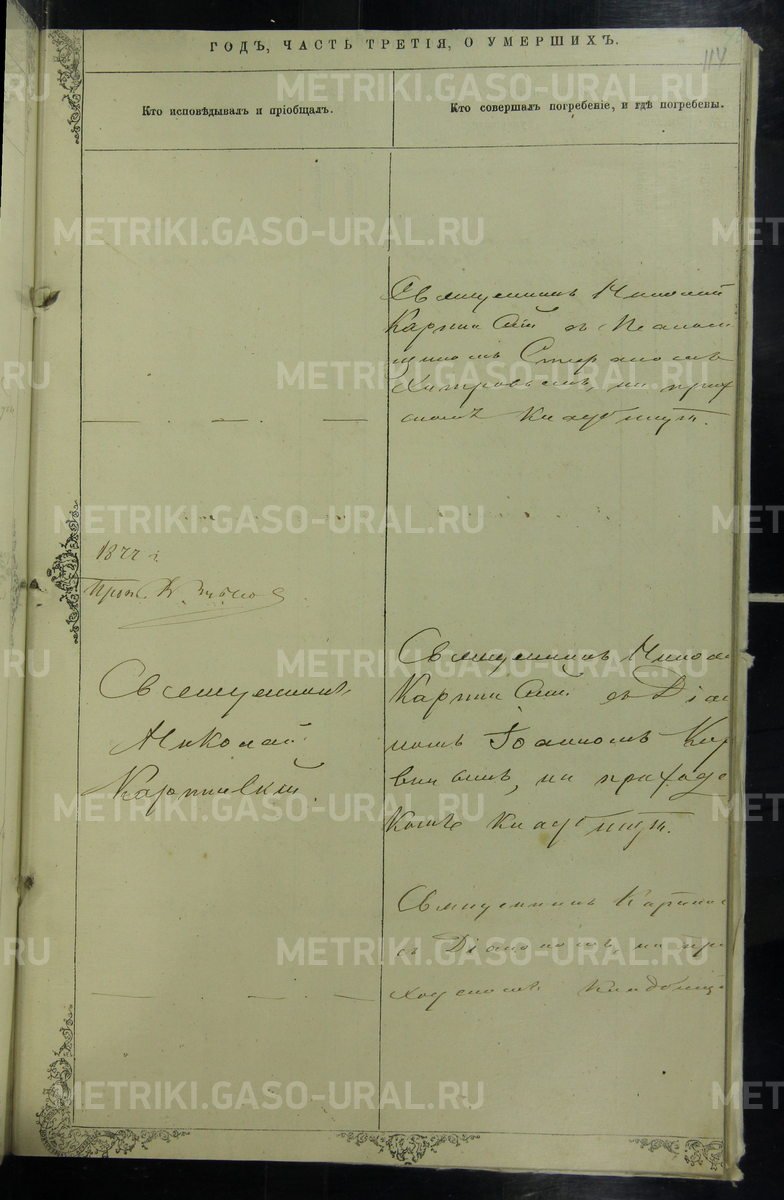 ГОДЪ, ЧАСТЬ ТРЕТІЯ, О УМЕРШИХЪ.
114
Кто исповѣдывалъ и пріобщалъ.
Кто совершалъ погребеніе, и гдѣ погребены.
Священникъ Николай
Карпинскій съ
Хитровымъ, на прих
скомъ кладбищѣ.
1877 г.
Священникъ
Николай
Карпинскій.
Священникъ Никола
Карпинскій съ Діак
номъ Іоанномъ Кир
, на приходс
комъ кладбищѣ.
Священникъ Карпинс
съ Діакономъ, на при
ходскомъ кладбищ
METRIKI.GASO-URAL.RU